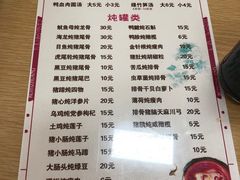 鸭血肉圆汤 大5元 小3元
猪竹笋汤 大6元 小3元
炖罐类
鱿鱼母炖龙骨 30元
海龙炖猪尾骨 30元
目鱼炖猪尾骨 20元
虎尾轮炖猪尾骨 15元
黑豆炖猪尾骨 15元
黑豆炖猪尾巴 20元
猪蹄炖四物 15元
猪心炖洋参片 20元
乌鸡炖党参枸杞 15元
土鸡炖莲子 15元
猪小肠炖莲子 15元
猪小肠炖马蹄 15元
大肠头炖绿豆 20元
鸭腿炖石斛 15元
鸭胗炖橄榄 6元
金针根炖瘦肉 10元
茶树菇炖排骨 10元
苦瓜炖排骨 10元
虫草菌炖排骨 15元
排骨干贝白萝卜 15元
薄荷炖瘦肉 15元
排骨猪脑天麻川芎 20元
猪肺炖咸橄榄 15元